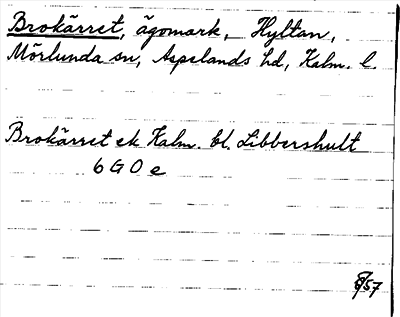 Brokärret, ägomark, Hyltan,
Mörlunda sn, Aspelands hd, Kalm. l.
Brokärret ek Kalm. bl. Libbershult
6 G O e